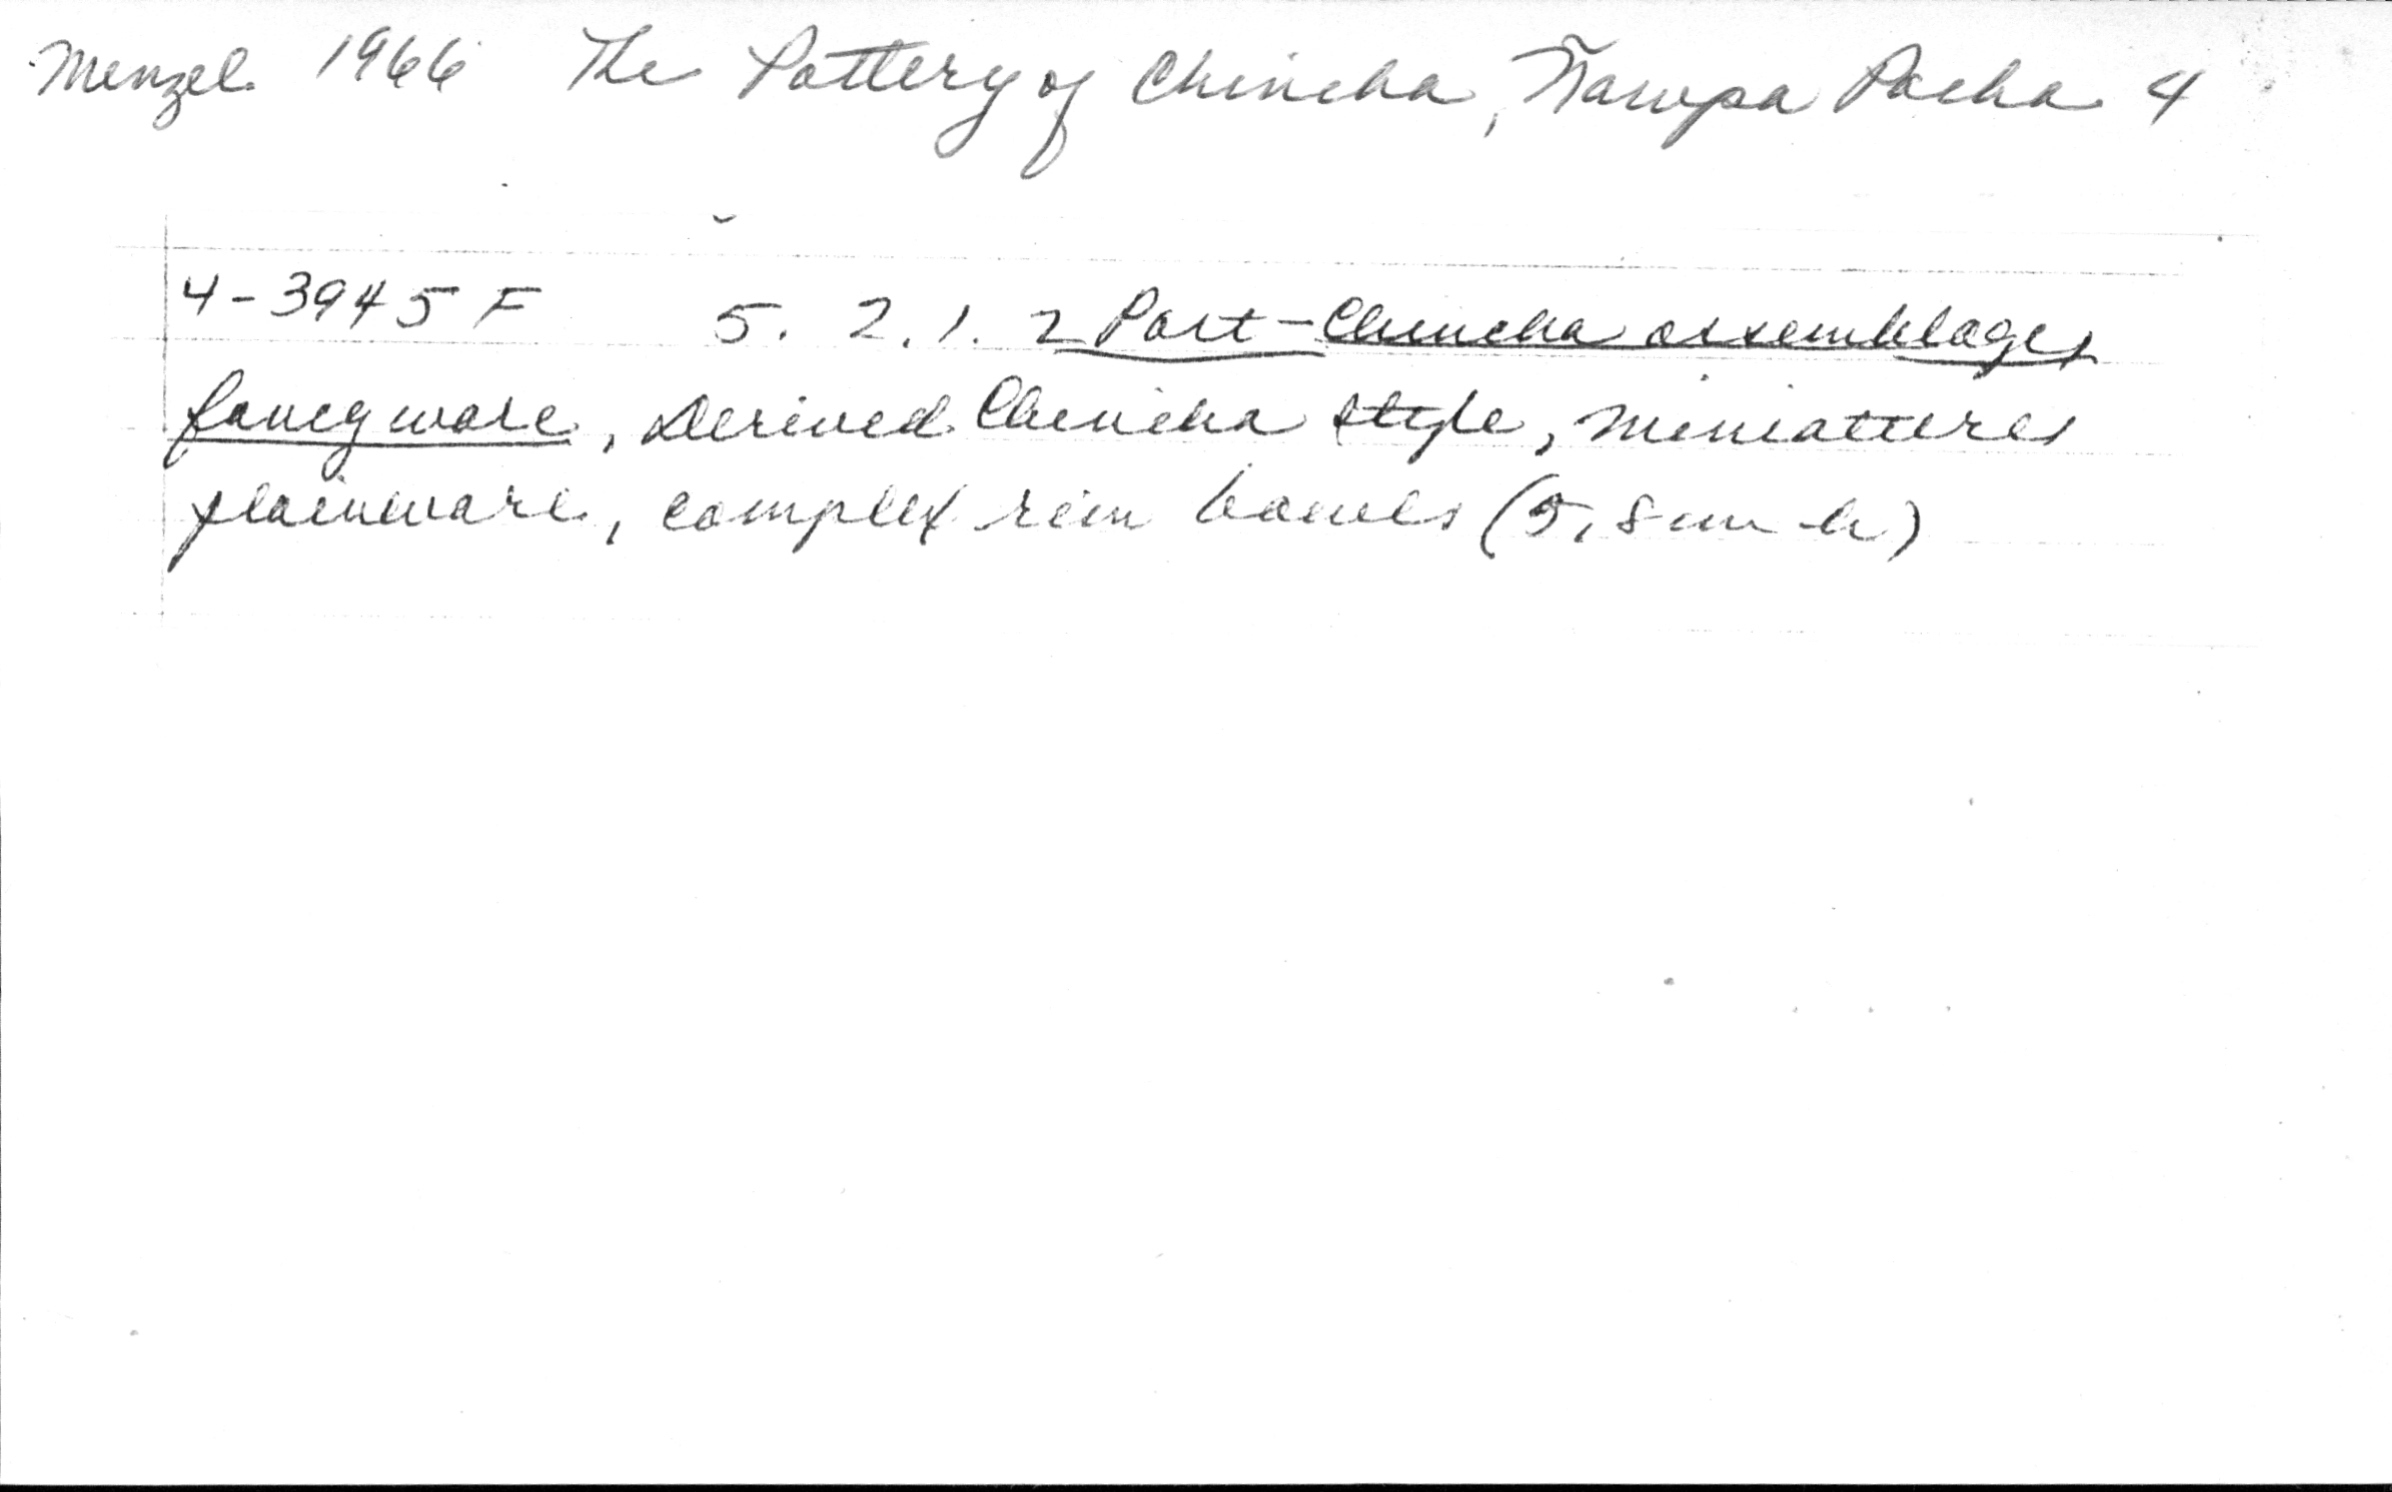 Menzel 1966 The Pottery of Chincha, Ñawpa Pacha 4
4-3945 F 5. 2. 1. 2 Post-Chincha assemblages
fancy ware, Derived Chincha style, miniatures
plainware, complex rim bowls (5,8 cm h)